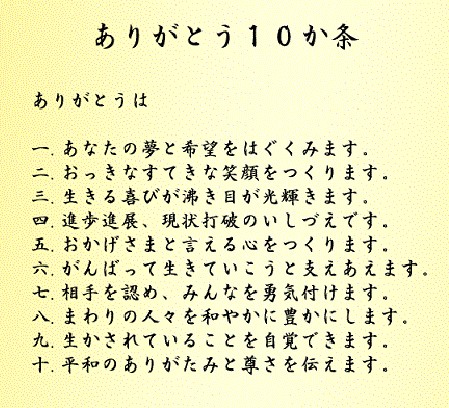 ありがとう１０か条
ありがとうは
一．あなたの夢と希望をはぐくみます。
二．おっきなすてきな笑顔をつくります。
三．生きる喜びが沸き目が光輝きます。
四．進歩進展、現状打破のいしづえです。
五．おかげさまと言える心をつくります。
六．がんばって生きていこうと支えあえます。
七．相手を認め、みんなを勇気付けます。
八．まわりの人々を和やかに豊かにします。
九．生かされていることを自覚できます。
十．平和のありがたみと尊さを伝えます。